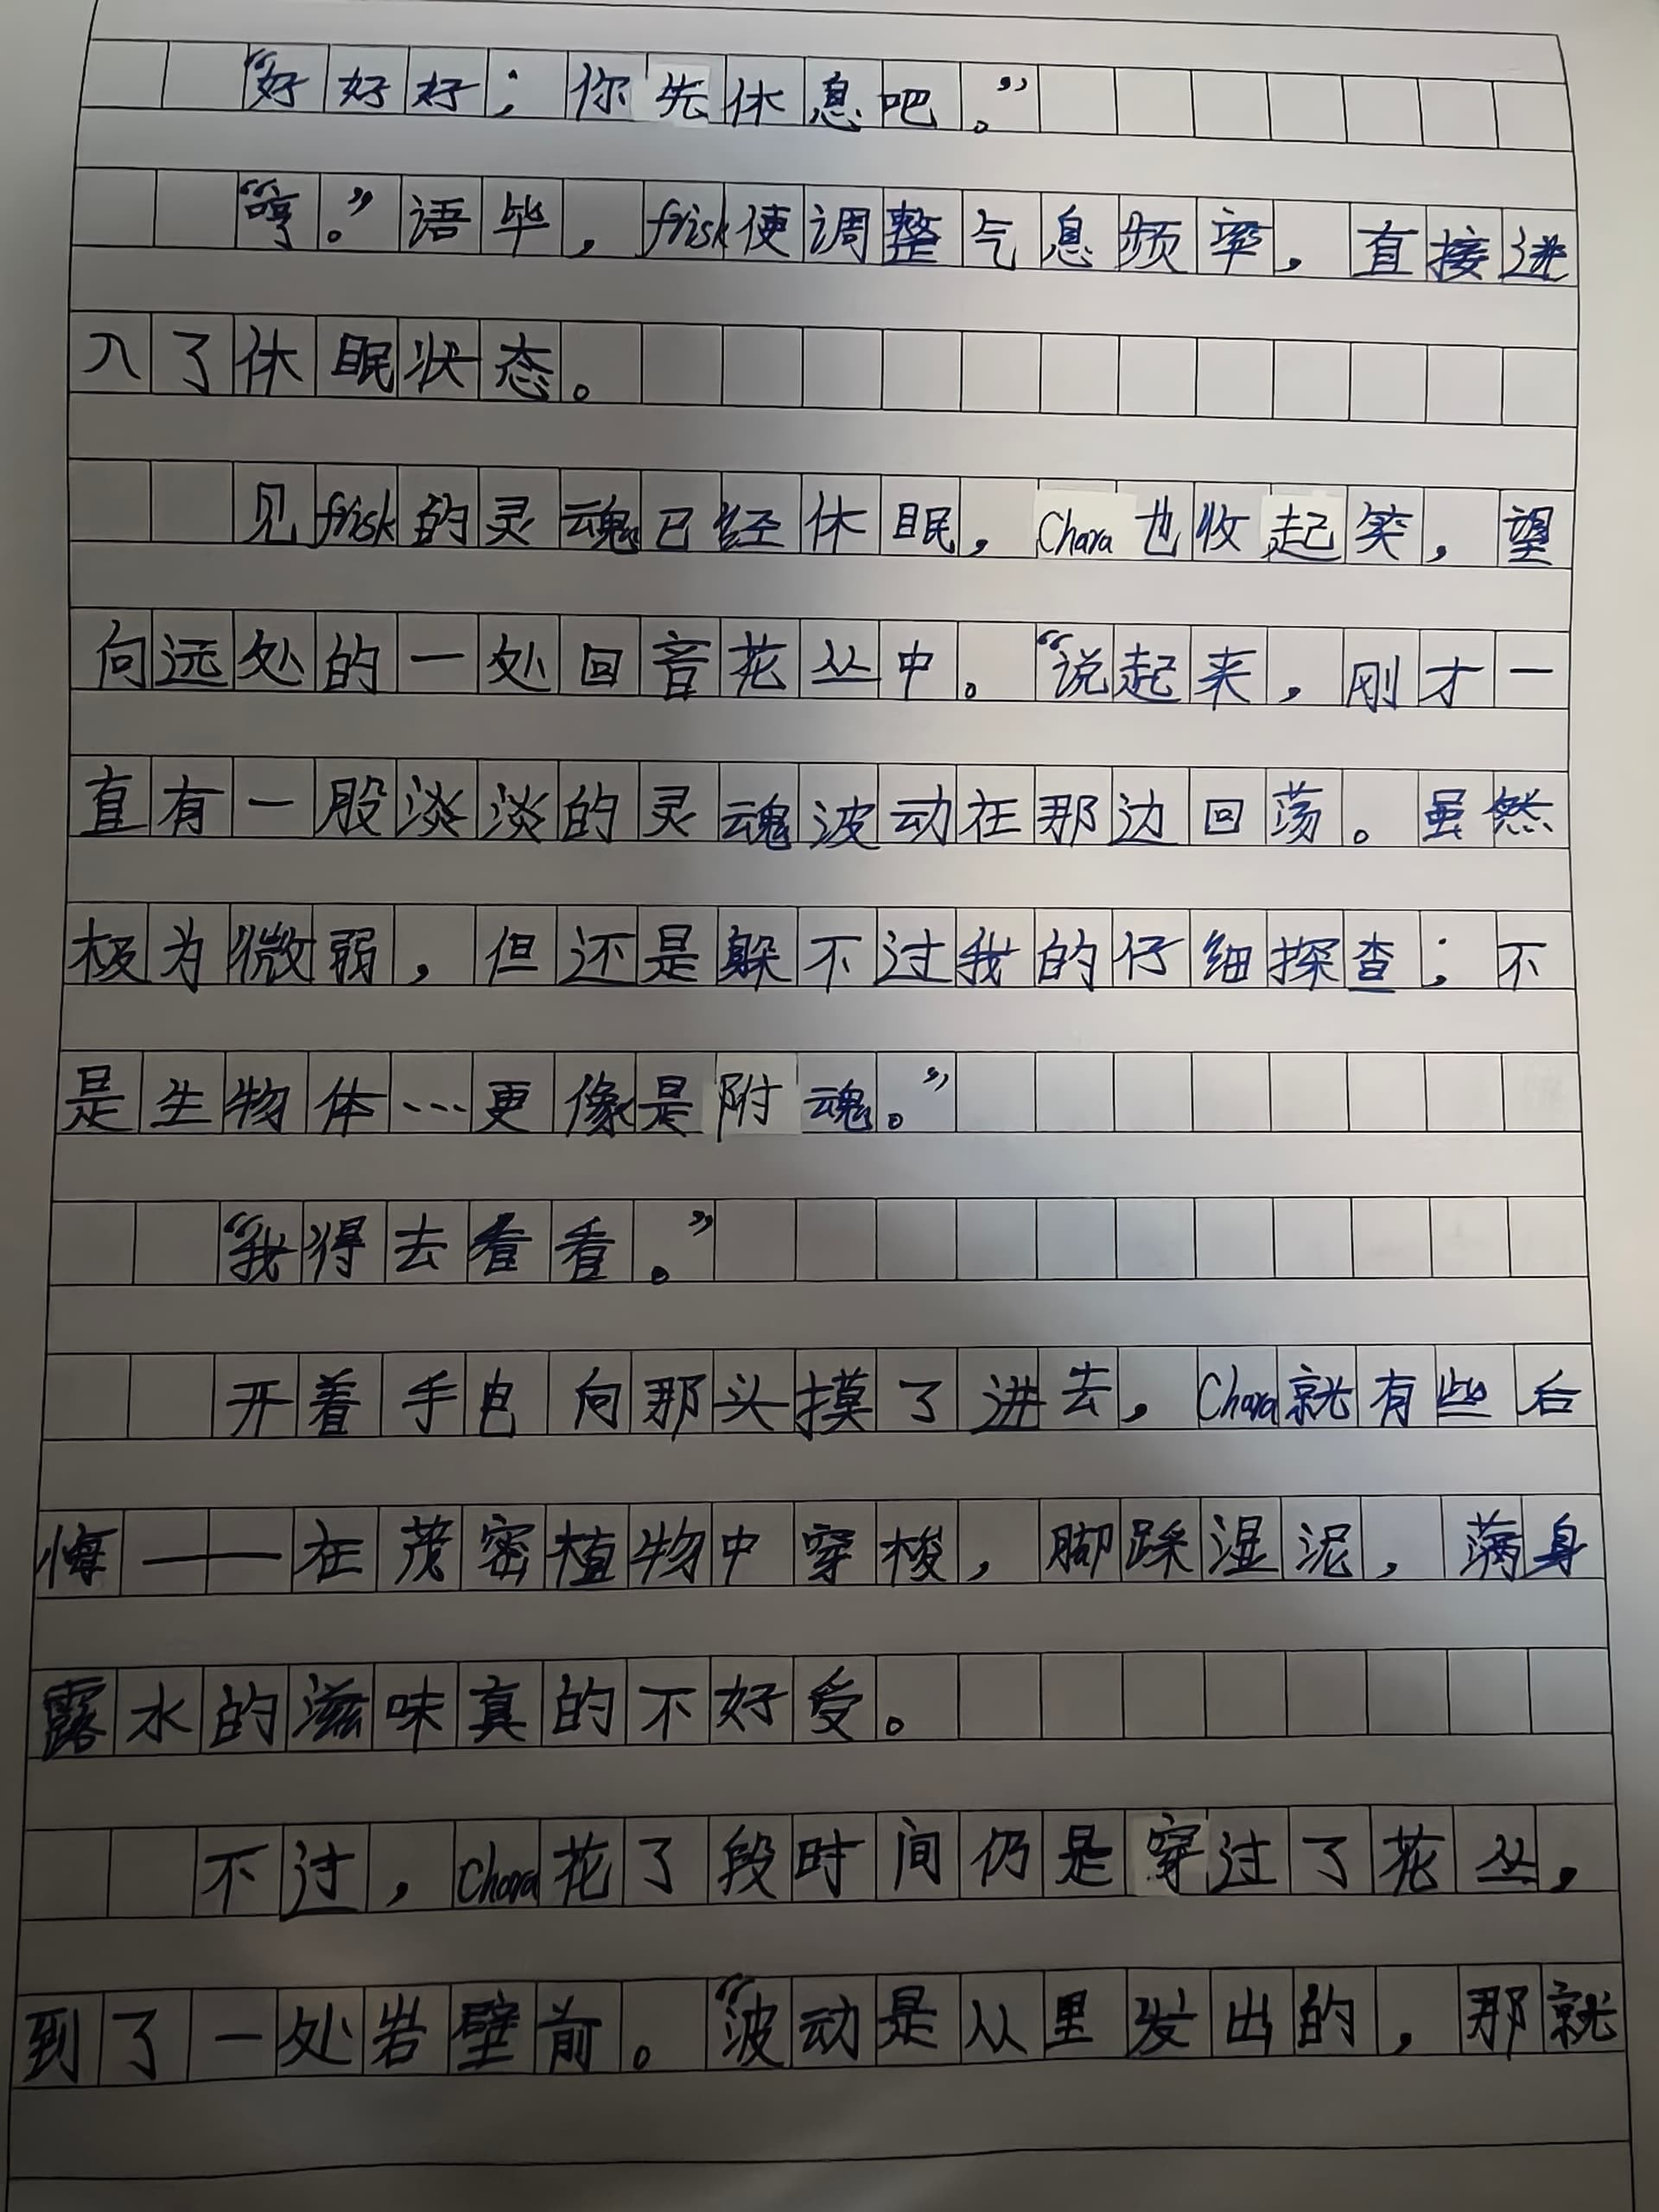 “好好好；你先休息吧。”
“哼。”语毕，frisk使调整气息频率，直接进
入了休眠状态。
见frisk的灵魂已经休眠，Chara也收起笑，望
向远处的一处回音花丛中。“说起来，刚才一
直有一股淡淡的灵魂波动在那边回荡。虽然
极为微弱，但还是躲不过我的仔细探查；不
是生物体…更像是附魂。”
“我得去看看。”
开着手电向那头摸了进去，Chara就有些后
悔——在茂密植物中穿梭，脚踩湿泥，满身
露水的滋味真的不好受。
不过，Chara花了段时间仍是穿过了花丛，
到了一处岩壁前。“波动是从里发出的，那就